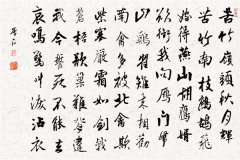 苦竹嶺頭秋月輝
苦竹南枝鷓鴣飛
嫁得燕山胡雁婿
欲銜我向雁門歸
山雞翟雉來相勸
南禽多被北禽欺
紫塞嚴霜如劍戟
蒼梧欲巢難背違
我今誓死不能去
哀鳴驚叫淚沾衣